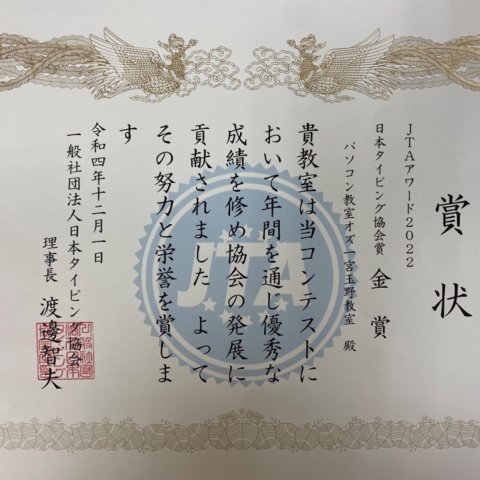 賞状
JTAアワード2022
日本タイピング協会賞 金賞
パソコン教室オズ一宮玉野教室 殿
貴教室は当コンテストに
おいて年間を通じ優秀な
成績を修め協会の発展に
貢献されました よって
その努力と栄誉を賞しま
す
令和四年十二月一日
一般社団法人日本タイピング協会
理事長 渡邊智夫
JTA